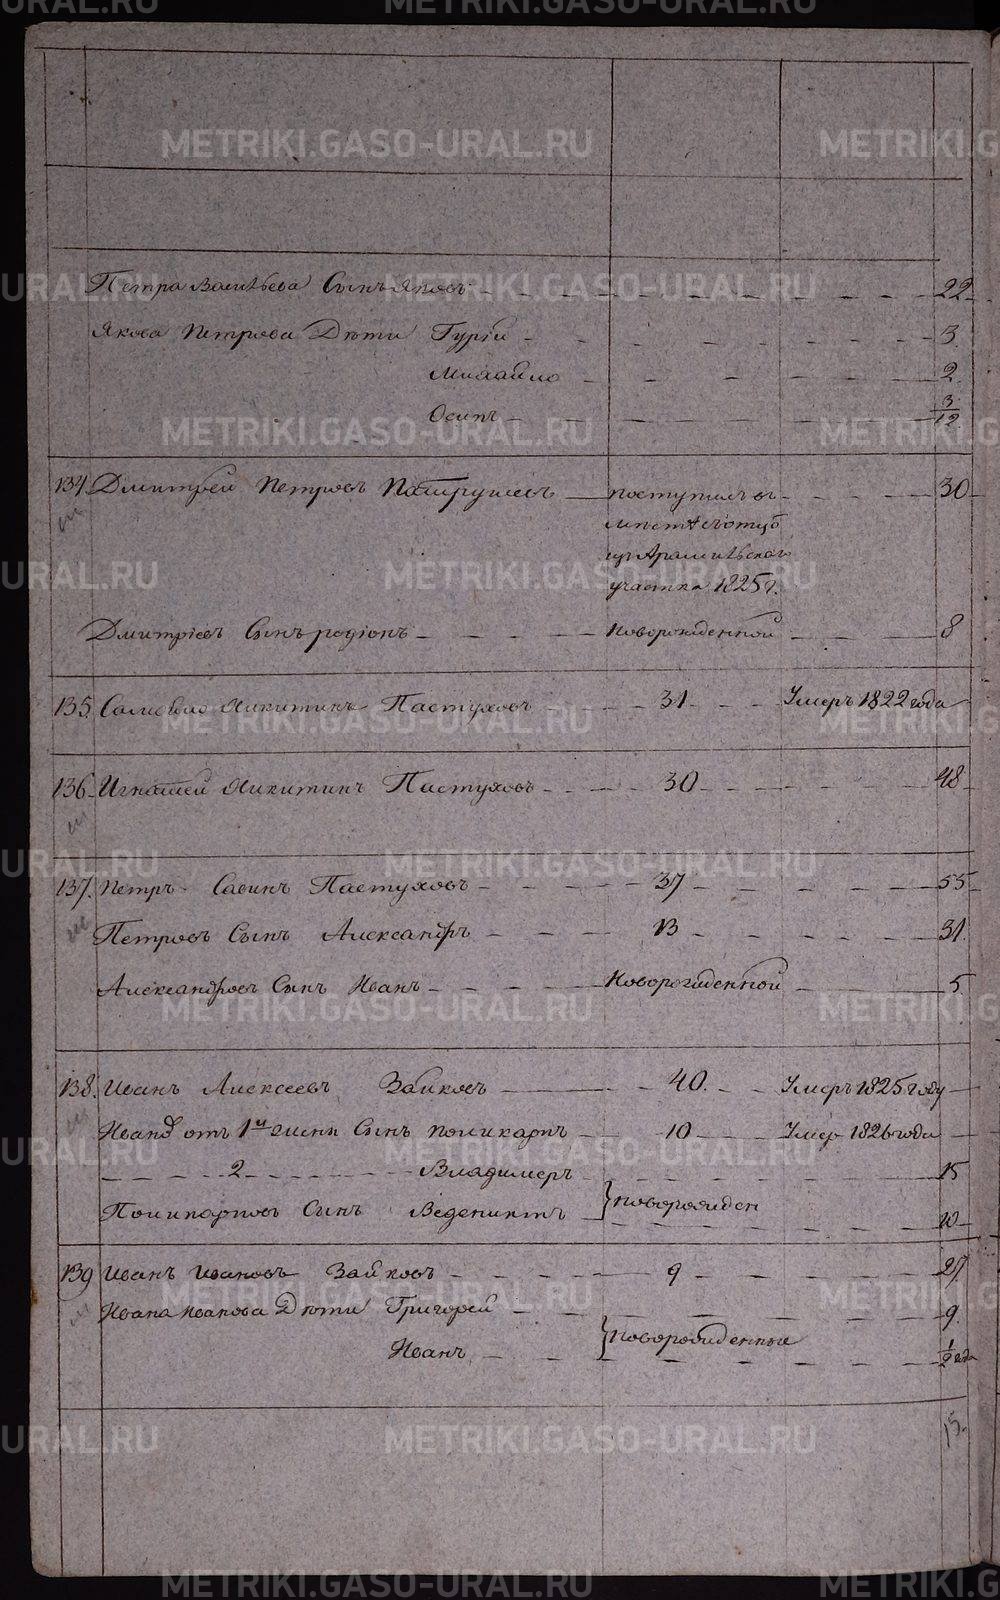 Петра Васильева Сынъ Яковъ 22
Якова Петрова Дети Гурiй 3
Михайло 2
Осипъ 3/12
134 Дмитрей Петровъ Патрушевъ поступилъ въ 30
изъ Арамильскаго
участка 1825г.
Дмитрiевъ Сынъ родiонъ новорожденной 8
135 Самойло Никитинъ Пастуховъ 31 Умеръ 1822 года
136 Игнатей Никитинъ Пастуховъ 30 48
137. Петръ Савинъ Пастуховъ 37 55
Петровъ Сынъ Александръ 13 31.
Александровъ Сынъ Иванъ Новорожденной 5
138. Иванъ Алексеевъ Зайковъ 40. Умеръ 1825 году
Ивана отъ 1й жены Сынъ поликарпъ 10 Умеръ 1826 года
2 Владимеръ 15
Поликарповъ Сынъ Веденихтъ новорожден 10
139 Иванъ Ивановъ Зайковъ 9 27
Ивана Иванова Дети Григорей 9.
Иванъ новорожденные 1/2 года
15.
METRIKI.GASO-URAL.RU